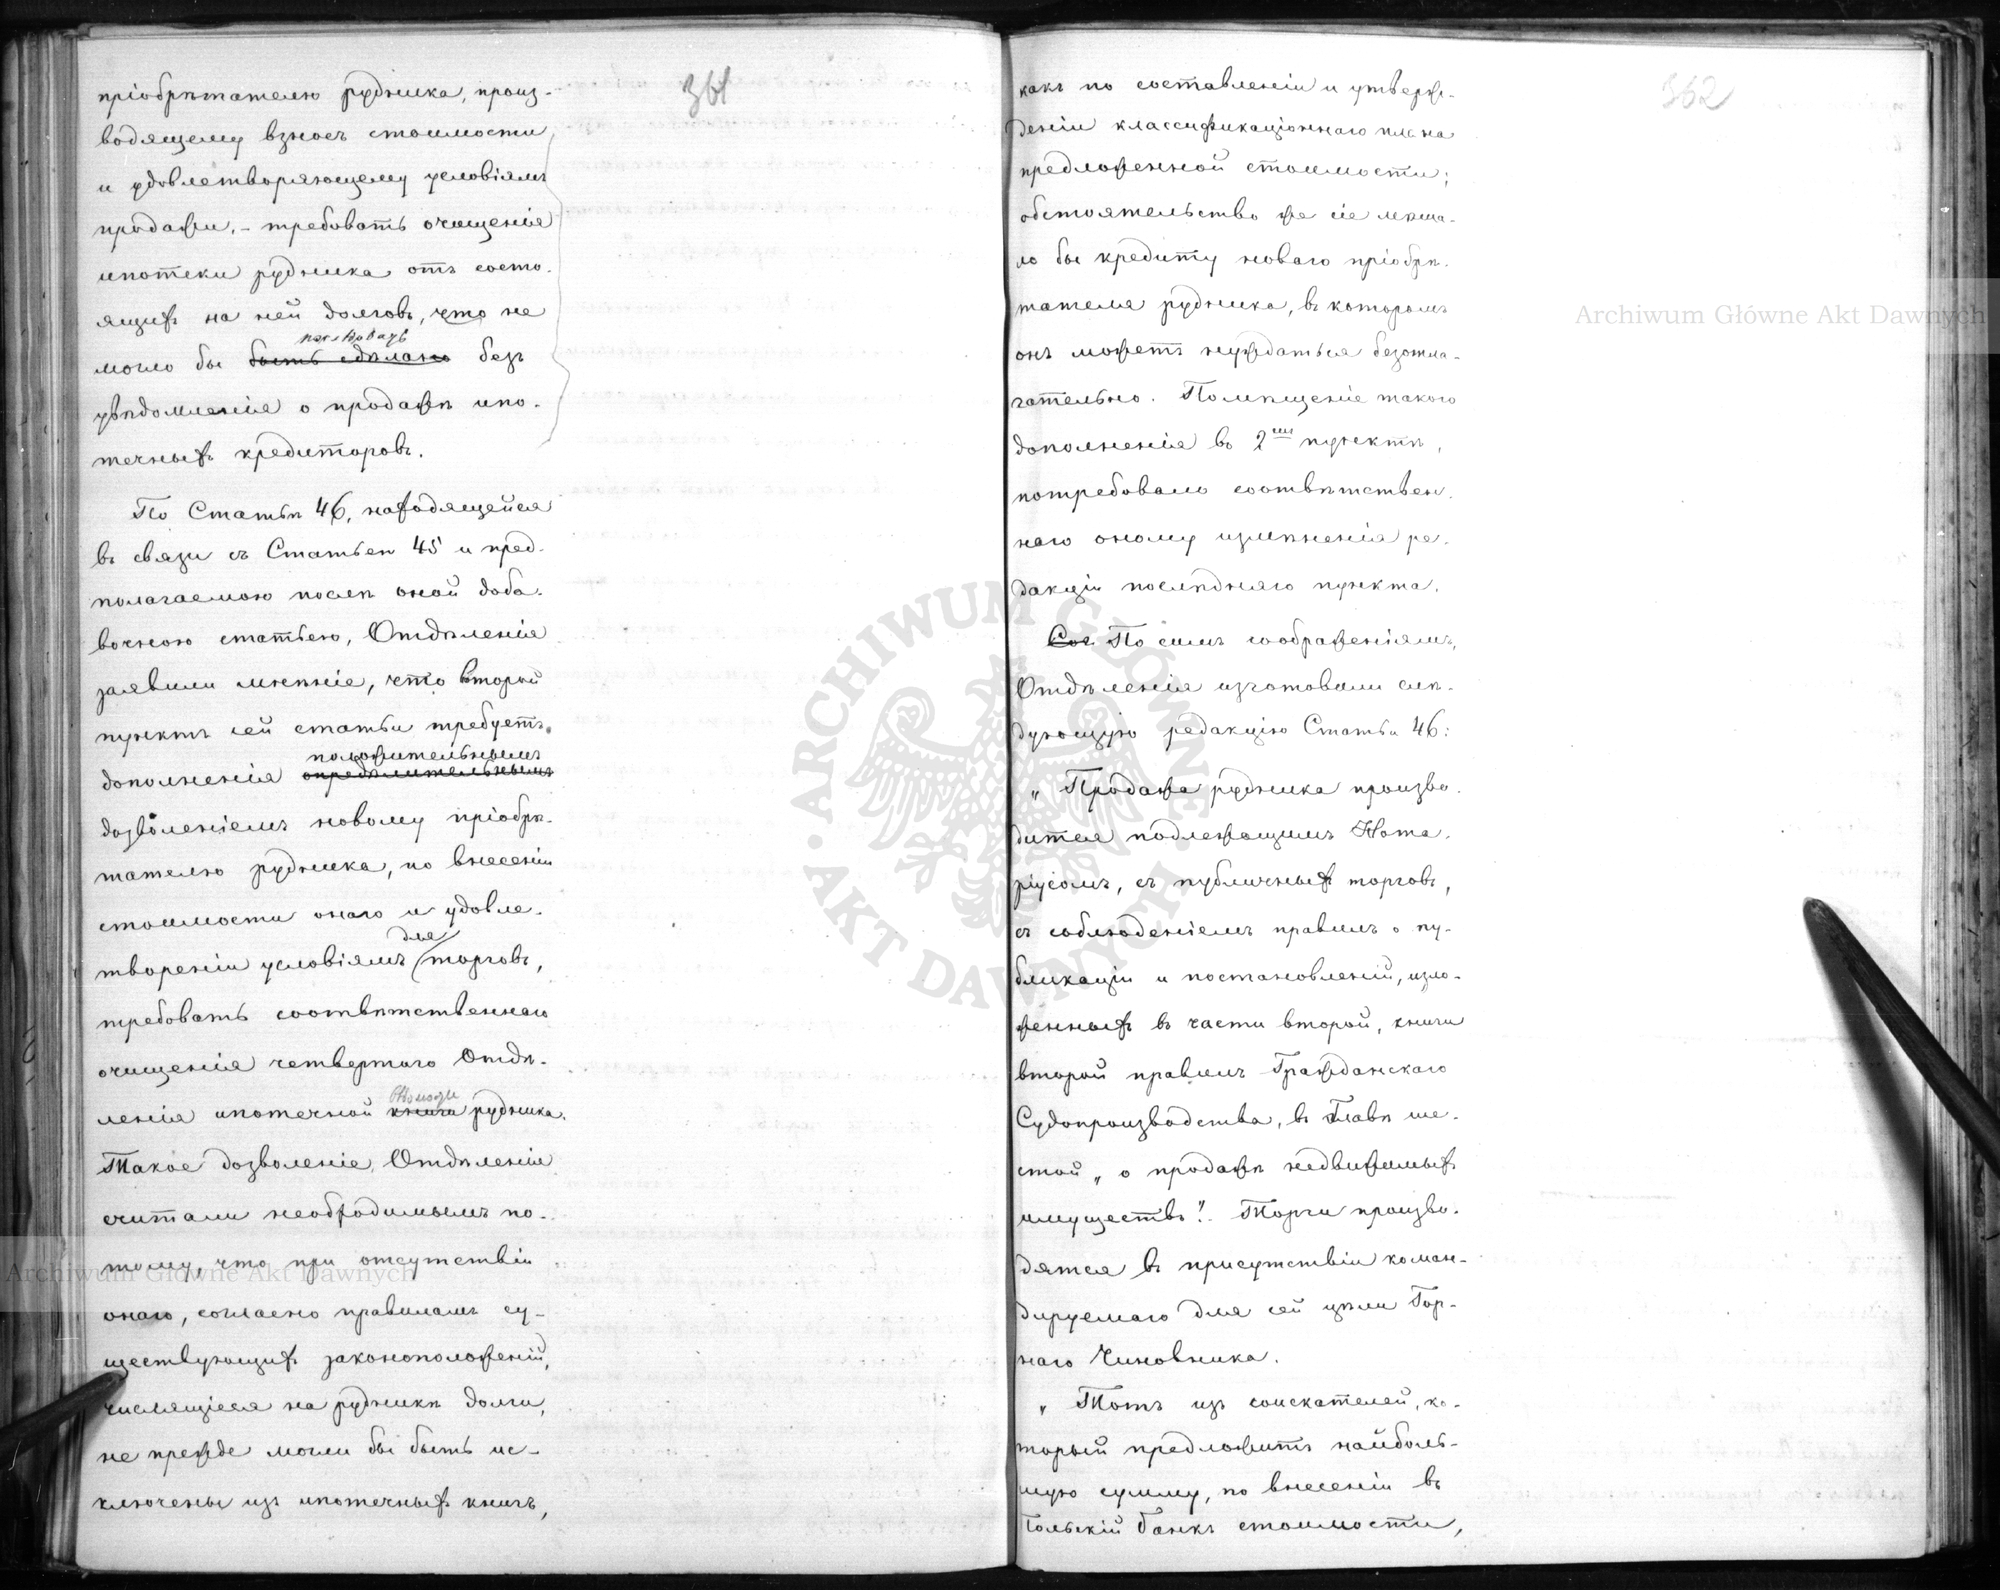 361
пріобрѣтателю рудника, произ-
водящему взносъ стоимости
и удовлетворяющему условіямъ
продажи, - требовать очищенія
ипотеки рудника отъ состо-
ящихъ на ней долговъ, что не
послѣдовать
могло бы быть сдѣлано безъ
увѣдомленія о продажѣ ипо-
течныхъ кредиторовъ.
По Статьѣ 46, находящейся
въ связи съ Статьею 45 и пред-
полагаемою послѣ оной доба-
вочною статьею, Отдѣленія
заявили мнѣніе, что второй
пунктъ сей статьи требуетъ
положительнымъ
дополненія опредѣлительнымъ
дозволеніемъ новому пріобрѣ-
тателю рудника, по внесеніи
стоимости онаго и удовле-
для
твореніи условіямъ торговъ,
требовать соотвѣтственнаго
очищенія четвертаго Отдѣ-
ленія ипотечной книги рудника.
Такое дозволеніе, Отдѣленія
считали необходимымъ по-
тому, что при отсутствіи
онаго, согласно правиламъ су-
ществующихъ законоположеній,
числящіеся на рудникѣ долги,
не прежде могли бы быть ис-
ключены изъ ипотечныхъ книгъ,
362
какъ по составленіи и утверж-
деніи классификаціоннаго плана
предложенной стоимости;
обстоятельство же сіе мѣша-
ло бы кредиту новаго пріобрѣ-
тателя рудника, въ которомъ
онъ можетъ нуждаться безотла-
гательно. Помѣщеніе такого
дополненія въ 2мъ пунктѣ,
потребовало соотвѣтствен-
наго оному измѣненія ре-
дакціи послѣдняго пункта.
Соо По симъ соображеніямъ,
Отдѣленія изготовили слѣ-
дующую редакцію Статьи 46:
„Продажа рудника произво-
дится подлежащимъ Нота-
ріусомъ, съ публичныхъ торговъ,
съ соблюденіемъ правилъ о пу-
бликаціи и постановленій, изло-
женныхъ въ части второй, книги
второй правилъ Гражданскаго
Судопроизводства, въ Главѣ ше-
стой „о продажѣ недвижимыхъ
имуществъ". Торги произво-
дятся въ присутствіи коман-
дируемаго для сей цѣли Гор-
наго Чиновника.
„Тотъ изъ соискателей, ко-
торый предложитъ наиболь-
шую сумму, по внесеніи въ
Польскій банкъ стоимости,
Archiwum Główne Akt Dawnych
Archiwum Główne Akt Dawnych
ARCHIWUM GŁÓWNE · AKT DAWNYCH ·